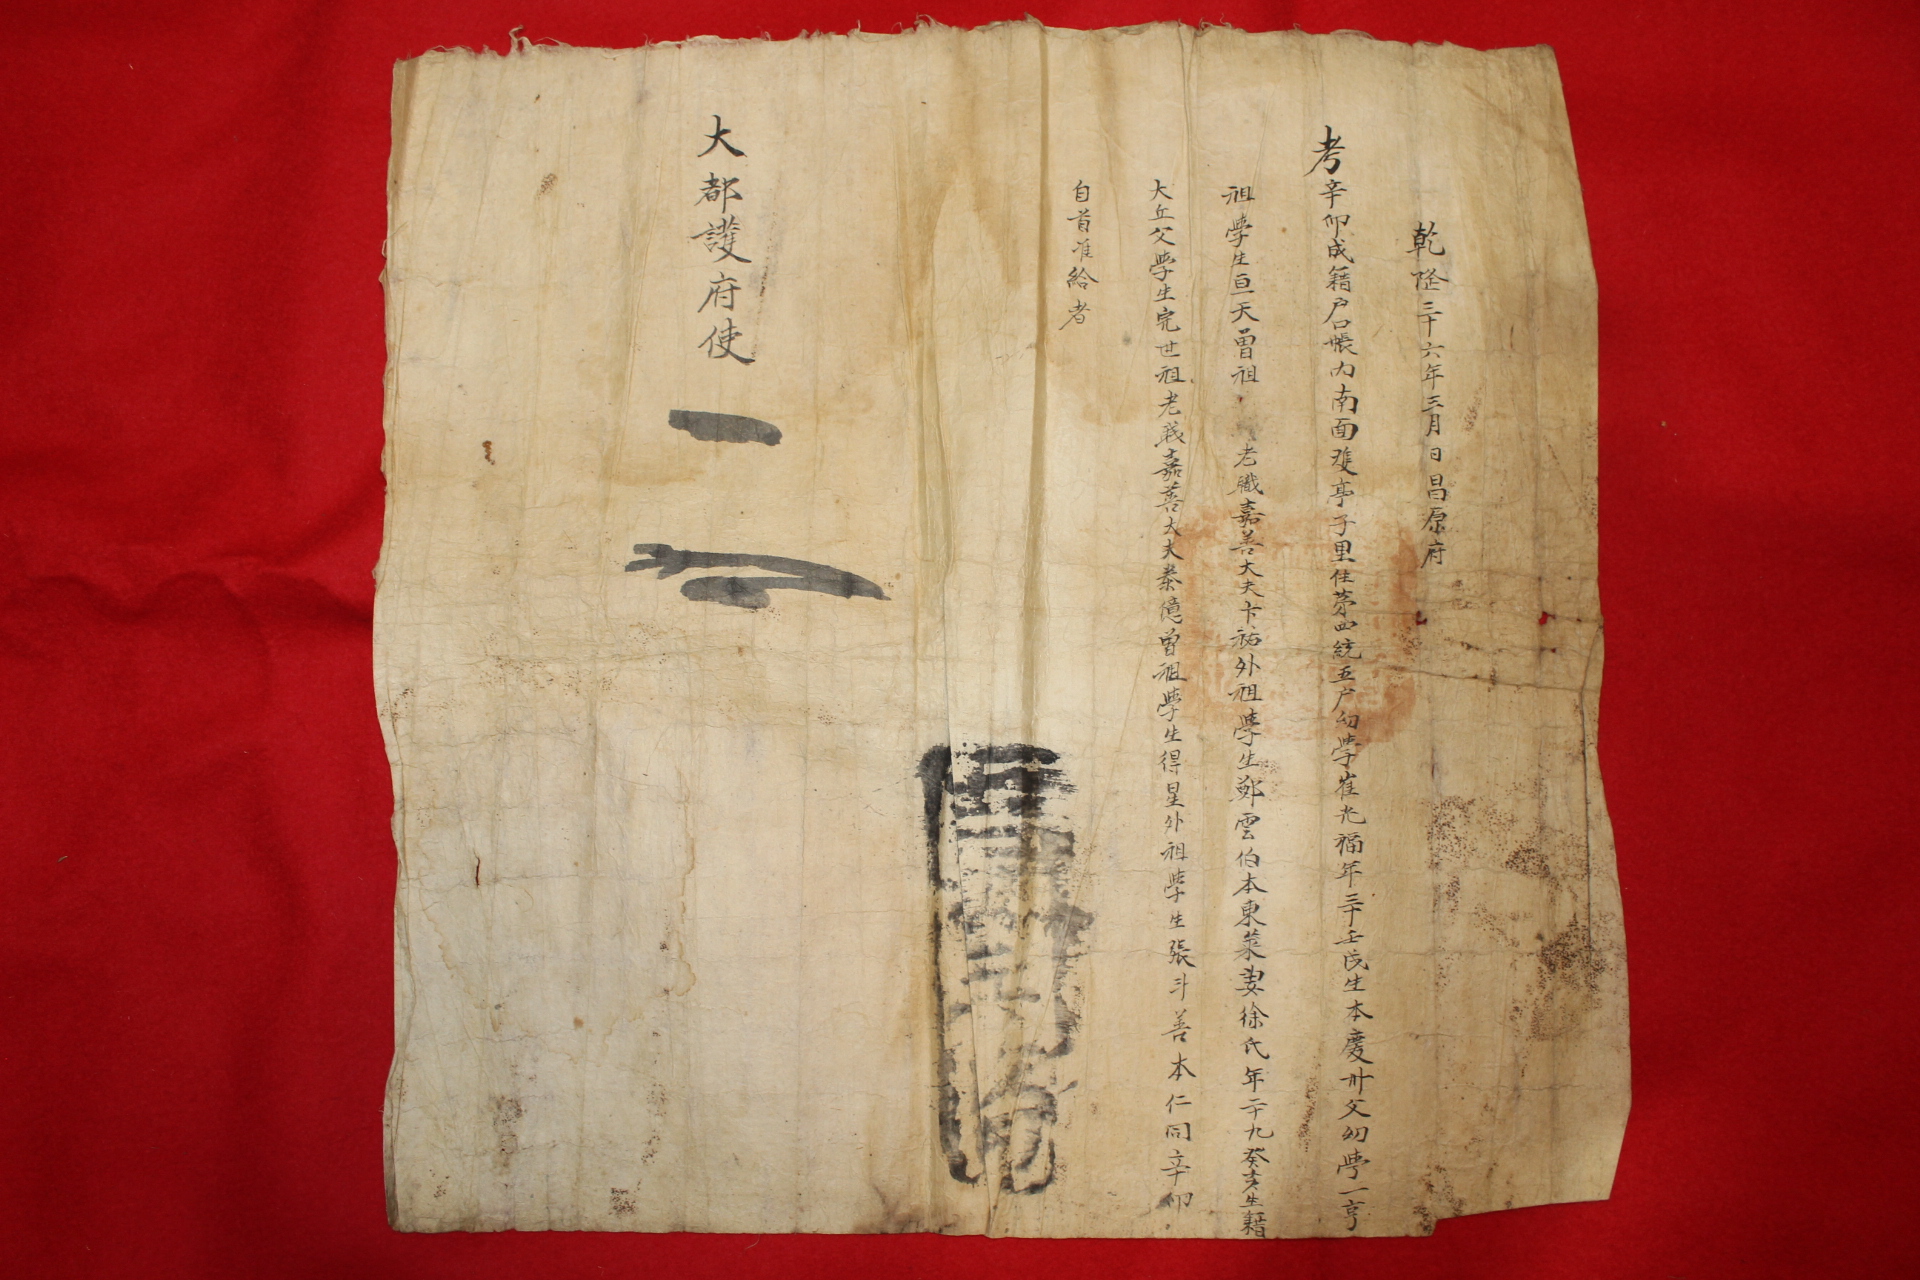 乾隆三十六年三月日昌原府
考辛卯成籍戶口帳內南面雙亭子里住第四統五户幼學崔光福年三十壬戌生本慶州父幼學一亨
祖學生亘天曽祖老職嘉善大夫卞祐外祖學生鄭雲伯本東萊妻徐氏年二十九癸亥生籍
大丘父學生完世祖老職嘉善大夫泰億曽祖學生得星外祖學生張斗善本仁同辛卯
自首准給者
大都護府使